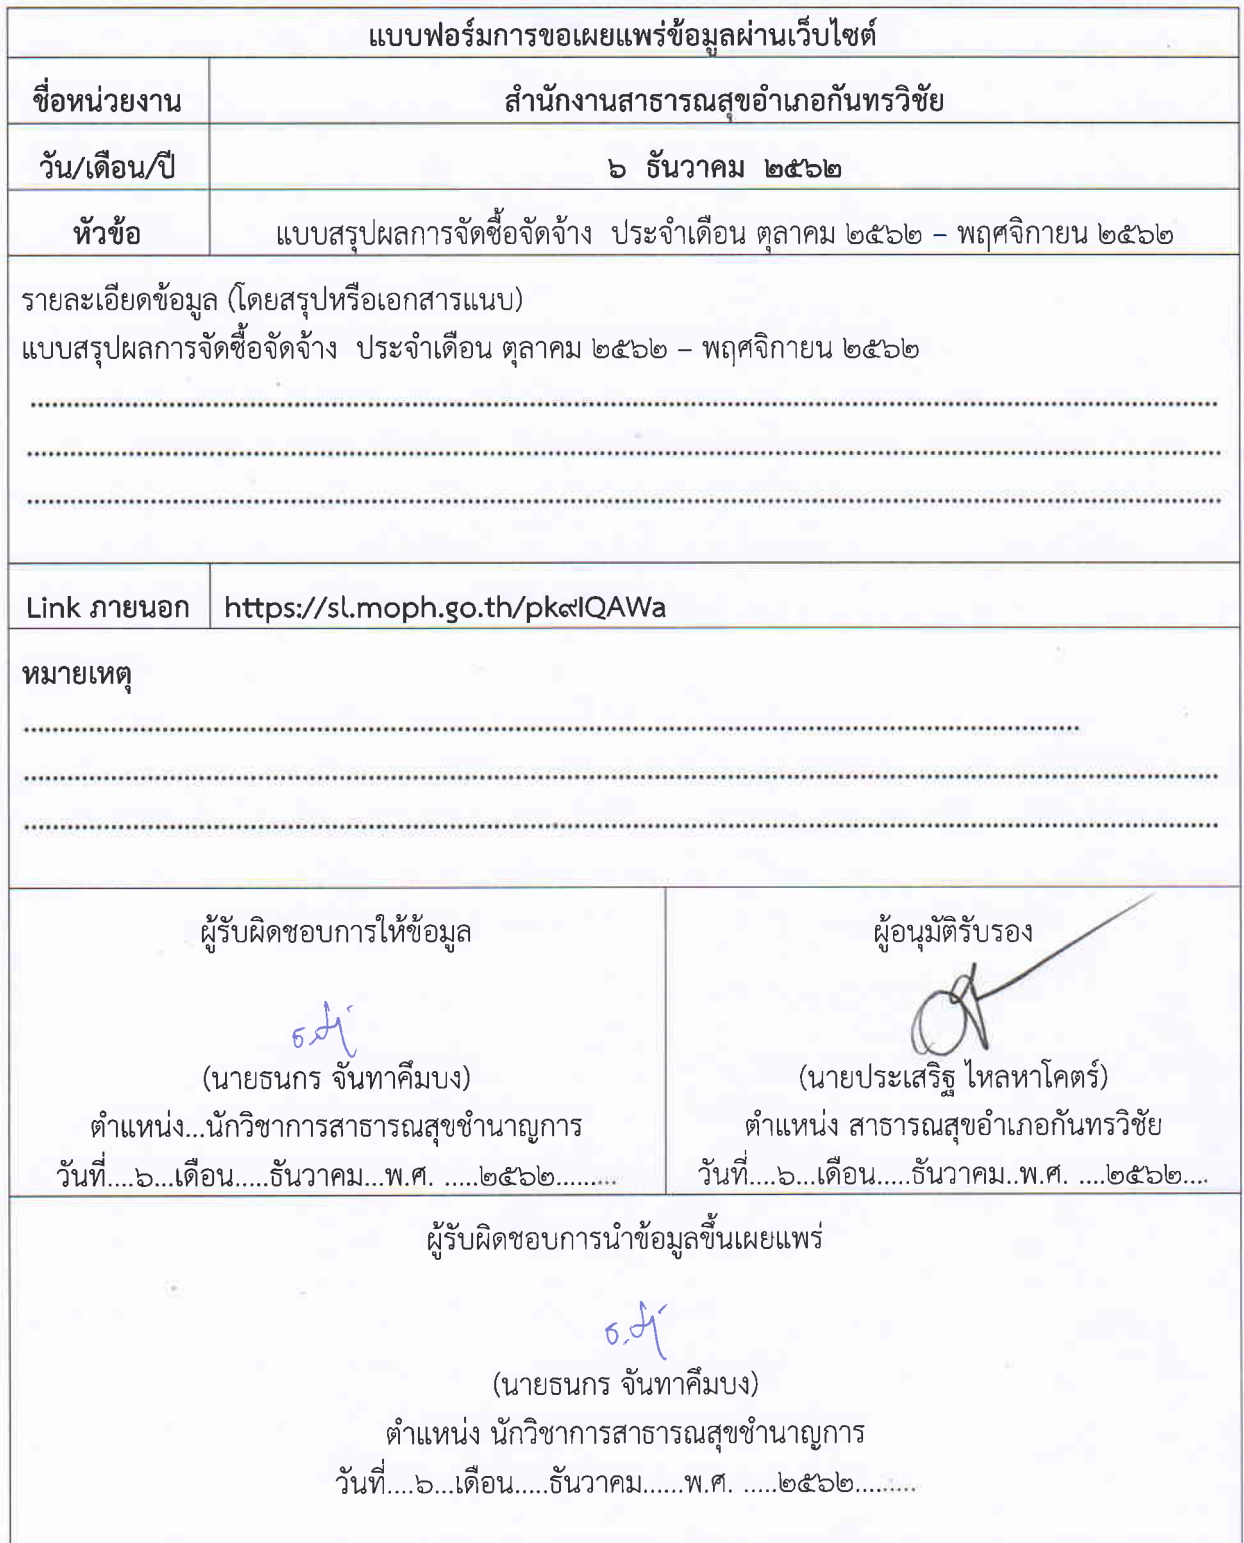 แบบฟอร์มการขอเผยแพร่ข้อมูลผ่านเว็บไซต์
ชื่อหน่วยงาน สำนักงานสาธารณสุขอำเภอกันทรวิชัย
วัน/เดือน/ปี ๖ ธันวาคม ๒๕๖๒
หัวข้อ แบบสรุปผลการจัดซื้อจัดจ้าง ประจำเดือน ตุลาคม ๒๕๖๒ – พฤศจิกายน ๒๕๖๒
รายละเอียดข้อมูล (โดยสรุปหรือเอกสารแนบ)
แบบสรุปผลการจัดซื้อจัดจ้าง ประจำเดือน ตุลาคม ๒๕๖๒ – พฤศจิกายน ๒๕๖๒
Link ภายนอก https://sl.moph.go.th/pk๙IQAWa
หมายเหตุ
ผู้รับผิดชอบการให้ข้อมูล
(นายธนกร จันทาคึมบง)
ตำแหน่ง...นักวิชาการสาธารณสุขชำนาญการ
วันที่....๖...เดือน.....ธันวาคม...พ.ศ. .....๒๕๖๒.........
ผู้อนุมัติรับรอง
(นายประเสริฐ ไหลหาโคตร์)
ตำแหน่ง สาธารณสุขอำเภอกันทรวิชัย
วันที่....๖...เดือน.....ธันวาคม..พ.ศ. ....๒๕๖๒....
ผู้รับผิดชอบการนำข้อมูลขึ้นเผยแพร่
(นายธนกร จันทาคึมบง)
ตำแหน่ง นักวิชาการสาธารณสุขชำนาญการ
วันที่....๖...เดือน.....ธันวาคม......พ.ศ. .....๒๕๖๒.........